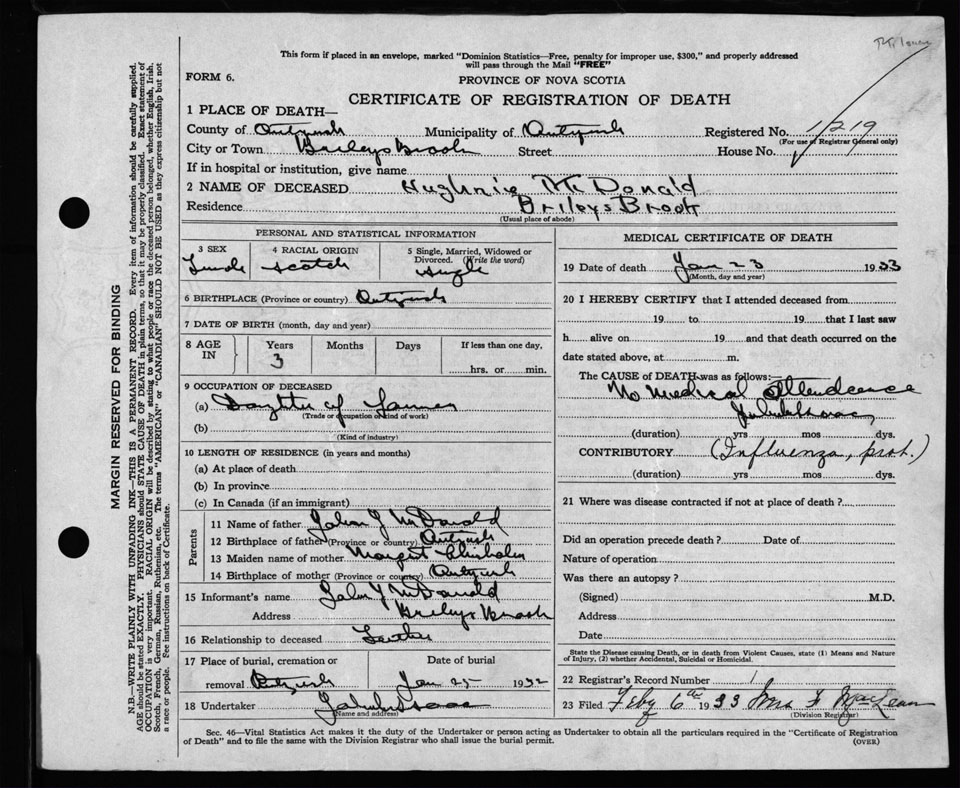 This form if placed in an envelope, marked "Dominion Statistics—Free, penalty for improper use, $300," and properly addressed
will pass through the Mail "FREE"
FORM 6.
PROVINCE OF NOVA SCOTIA
CERTIFICATE OF REGISTRATION OF DEATH
1 PLACE OF DEATH—
County of Antgnsh Municipality of Antgnsh Registered No. 1219
(For use of Registrar General only)
City or Town Brileys Brook Street House No.
If in hospital or institution, give name
2 NAME OF DECEASED Hughnie McDonald
Residence Brileys Brook
(Usual place of abode)
PERSONAL AND STATISTICAL INFORMATION
3 SEX 4 RACIAL ORIGIN 5 Single, Married, Widowed or
Divorced. (Write the word)
Scotch Single
6 BIRTHPLACE (Province or country) Antgnsh
7 DATE OF BIRTH (month, day and year)
8 AGE IN Years Months Days If less than one day,
3 hrs. or min.
9 OCCUPATION OF DECEASED
(a) Daughter of Farmer
(Trade or occupation or kind of work)
(b)
(Kind of industry)
10 LENGTH OF RESIDENCE (in years and months)
(a) At place of death
(b) In province
(c) In Canada (if an immigrant)
Parents
11 Name of father John J McDonald
12 Birthplace of father (Province or country) Antgnsh
13 Maiden name of mother Margret Chisholm
14 Birthplace of mother (Province or country) Antgnsh
15 Informant's name John J McDonald
Address Brileys Brook
16 Relationship to deceased Father
17 Place of burial, cremation or Date of burial
removal Antgnsh Jan 25 1932
18 Undertaker
(Name and address)
MEDICAL CERTIFICATE OF DEATH
19 Date of death Jan 23 1933
(Month, day and year)
20 I HEREBY CERTIFY that I attended deceased from
19 to 19 that I last saw
h alive on 19 and that death occurred on the
date stated above, at m.
The CAUSE OF DEATH was as follows:—
No Medical Attendence
(duration) yrs mos dys.
CONTRIBUTORY (Influenza, prob.)
(duration) yrs mos dys.
21 Where was disease contracted if not at place of death?
Did an operation precede death? Date of
Nature of operation
Was there an autopsy?
(Signed) M.D.
Address
Date
State the Disease causing Death, or in death from Violent Causes, state (1) Means and Nature
of Injury, (2) whether Accidental, Suicidal or Homicidal.
22 Registrar's Record Number 1
23 Filed Feby 6th 1933 Mrs F MacLean
(Division Registrar)
Sec. 46—Vital Statistics Act makes it the duty of the Undertaker or person acting as Undertaker to obtain all the particulars required in the "Certificate of Registration
of Death" and to file the same with the Division Registrar who shall issue the burial permit.
(OVER)
MARGIN RESERVED FOR BINDING
N.B.—WRITE PLAINLY WITH UNFADING INK—THIS IS A PERMANENT RECORD. Every item of information should be carefully supplied.
AGE should be stated EXACTLY. PHYSICIANS should STATE CAUSE OF DEATH in plain terms, so that it may be properly classified. Exact statement of
OCCUPATION is very important. RACIAL ORIGIN will be described by stating to what people or race the deceased person belonged, whether English, Irish,
Scotch, French, German, Russian, Ruthenian, etc. The terms "AMERICAN" or "CANADIAN" SHOULD NOT BE USED as they express citizenship but not
a race or people. See instructions on back of Certificate.